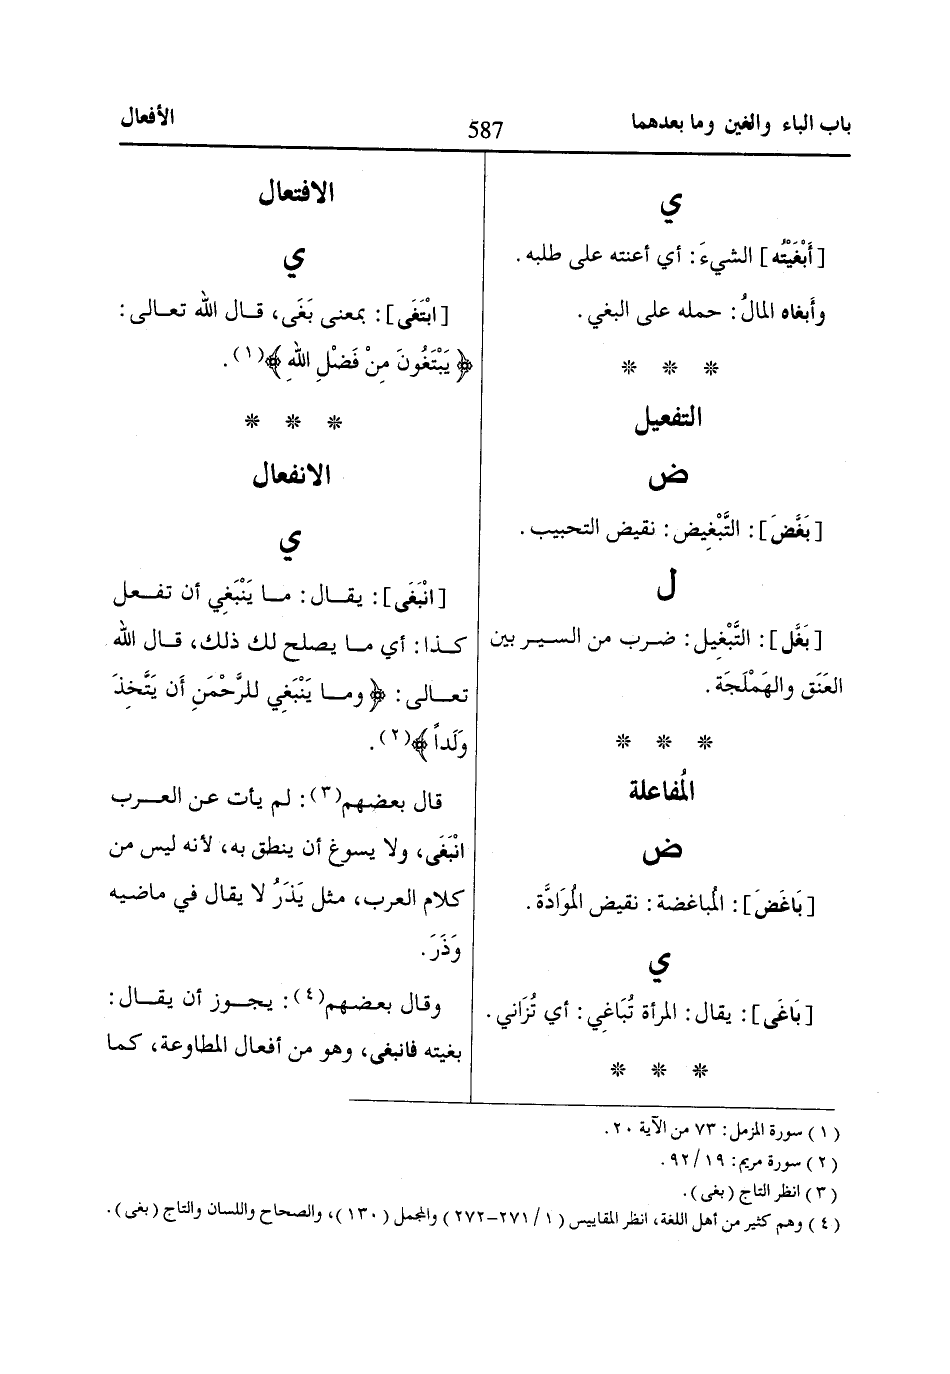 باب الباء والغين وما بعدهما
587
الأفعال
ي
[أَبْغَيْتُه] الشيءَ: أي أعنته على طلبه.
وأبغاه المالُ: حمله على البغي.
* * *
التفعيل
ض
[بَغَّضَ]: التَّبْغِيض: نقيض التحبيب.
ل
[بَغَّل]: التَّبْغِيل: ضرب من السير بين
العَنَق والهَمْلَجَة.
* * *
المُفاعلة
ض
[بَاغَضَ]: المُباغضة: نقيض المُوَادَّة.
ي
[بَاغَى]: يقال: المرأة تُبَاغِي: أي تُزَاني.
* * *
الافتعال
ي
[ابْتَغَى]: بمعنى بَغَى، قال الله تعالى:
﴿يَبْتَغُونَ مِنْ فَضْلِ اللهِ﴾(١).
* * *
الانفعال
ي
[انْبَغَى]: يقال: ما يَنْبَغِي أن تفعل
كذا: أي ما يصلح لك ذلك، قال الله
تعالى: ﴿وما يَنْبَغِي للرَّحْمَنِ أَن يَتَّخِذَ
وَلَداً﴾(٢).
قال بعضهم(٣): لم يأت عن العرب
انْبَغَى، ولا يسوغ أن ينطق به، لأنه ليس من
كلام العرب، مثل يَذَرُ لا يقال في ماضيه
وَذَرَ.
وقال بعضهم(٤): يجوز أن يقال:
بغيته فانبغى، وهو من أفعال المطاوعة، كما
(١) سورة المزمل: ٧٣ من الآية ٢٠.
(٢) سورة مريم: ١٩/ ٩٢.
(٣) انظر التاج (بغى).
(٤) وهم كثير من أهل اللغة، انظر المقاييس (١/ ٢٧١-٢٧٢) والمجمل (١٣٠)، والصحاح واللسان والتاج (بغى).